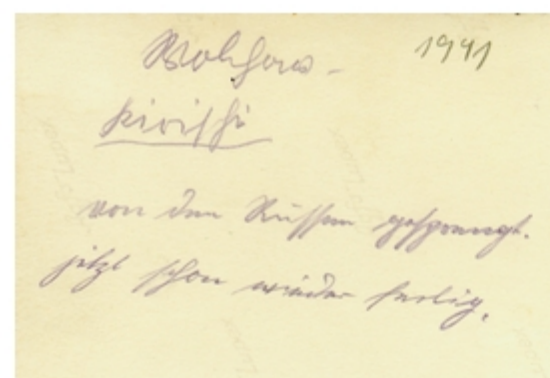 1941
Wolchow -
Kirischi
von den Russen gesprengt.
jetzt schon wieder fertig.